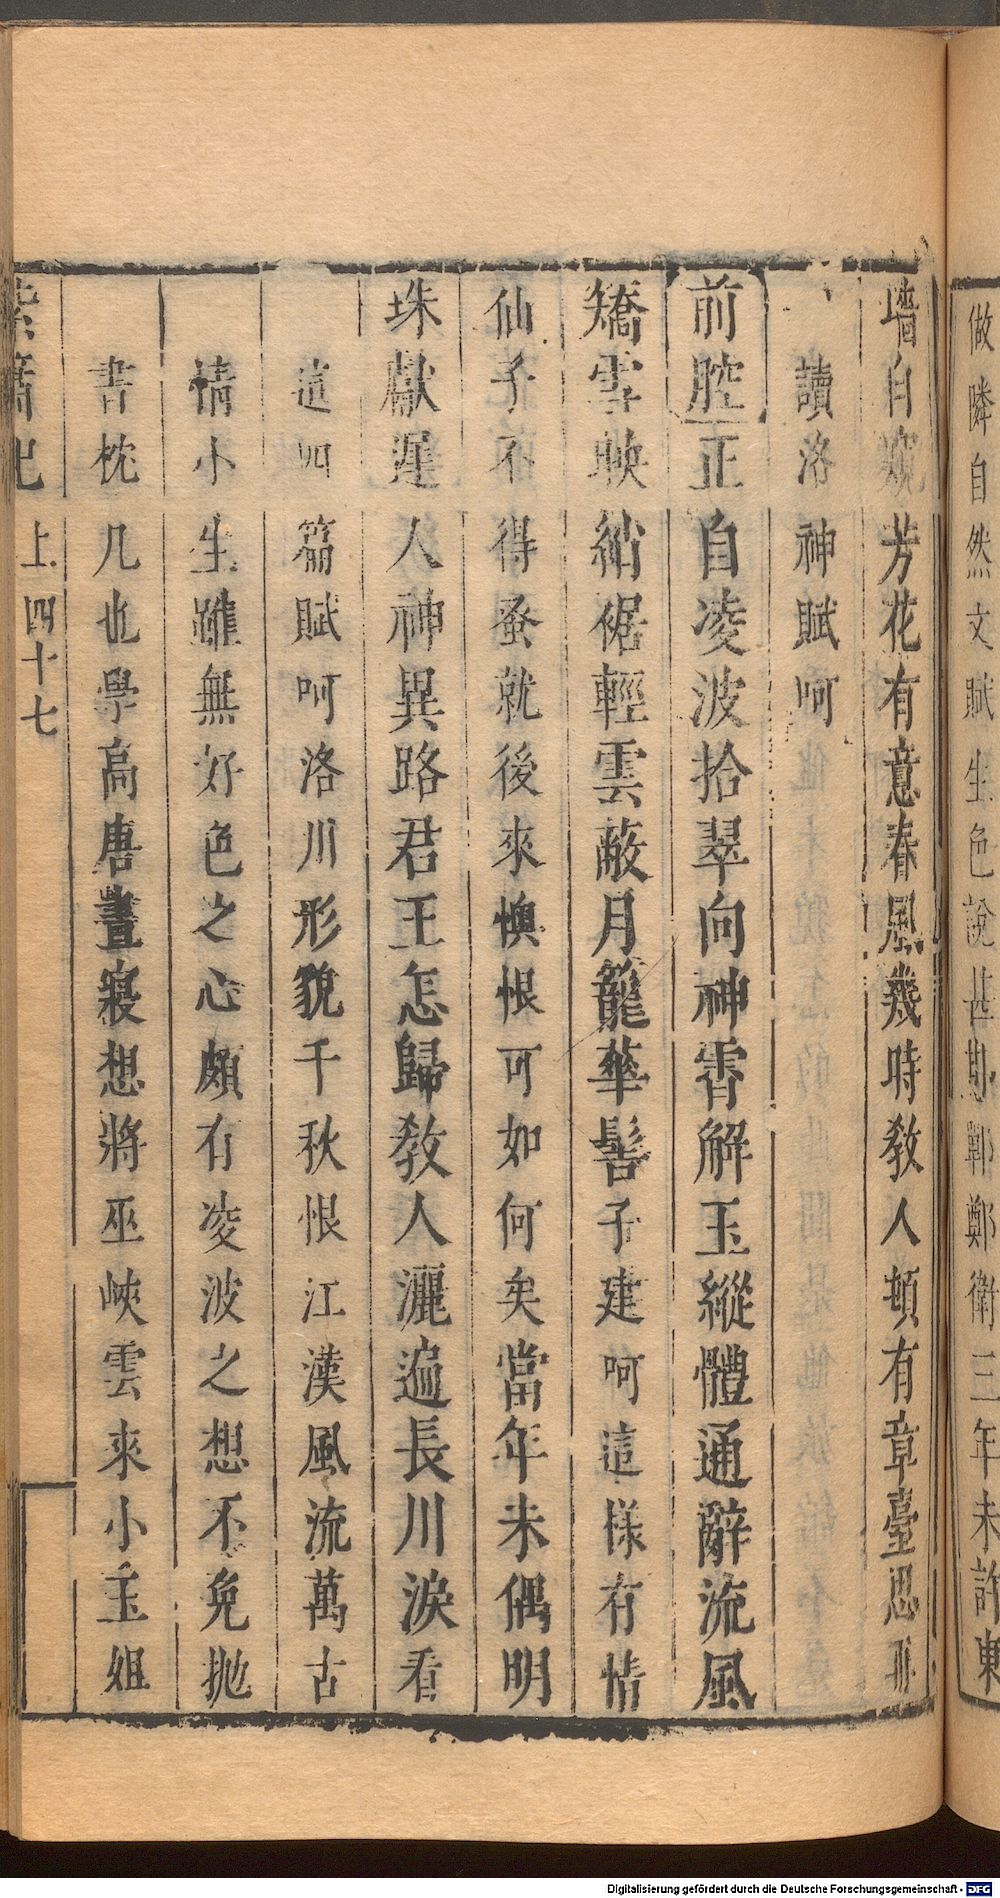 做隣自然文賦生色說甚邯鄲鄭衛三年未許東
墻自窺芳花有意春風幾時教人頓有章臺思
讀洛神賦呵
前腔正自凌波拾翠向神霄解玉縱體通辭流風
矯雪映綃裾輕雲蔽月籠華髻子建呵這樣有情
仙子不得蚤就後來懊恨可如何矣當年未偶明
珠獻遲人神異路君王怎歸教人灑遍長川淚看
這四篇賦呵洛川形貌千秋恨江漢風流萬古
情小生雖無好色之心頗有凌波之想不免拋
書枕几也學高唐晝寢想將巫峽雲來小玉姐
紫簫記 上 四十七
Digitalisierung gefördert durch die Deutsche Forschungsgemeinschaft - DFG